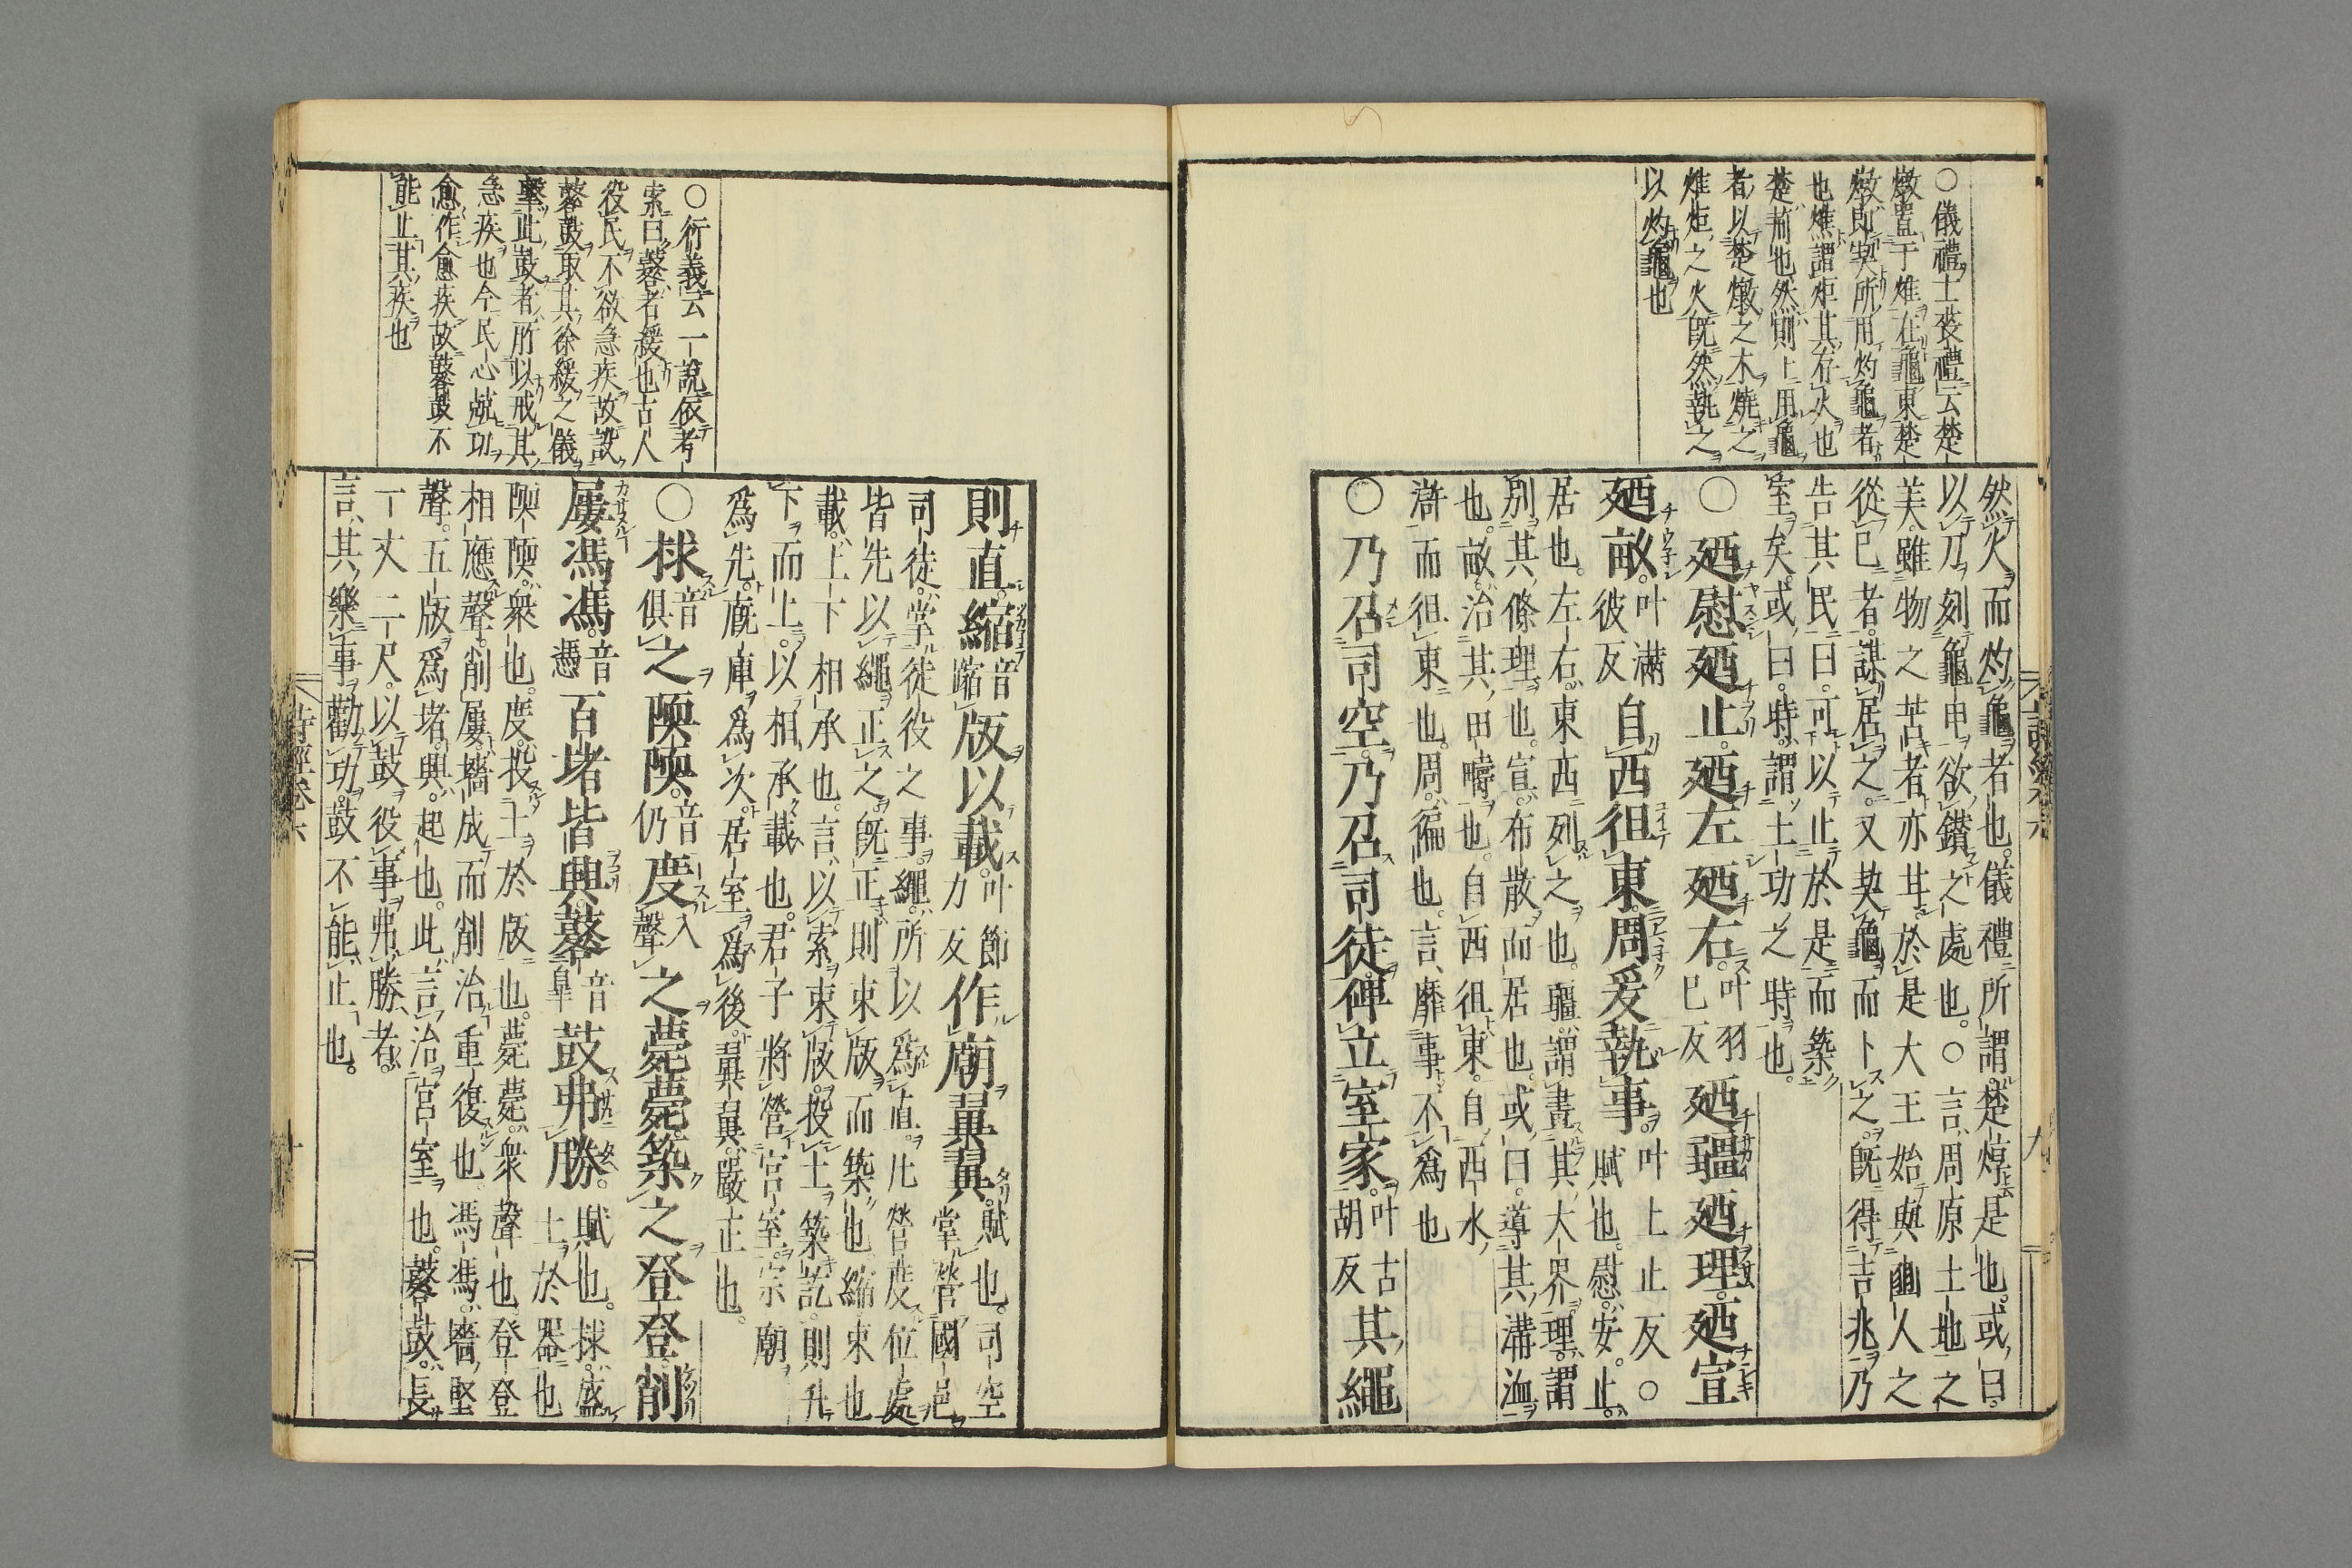 ○儀禮士喪禮云楚
燉置于燋在龜東楚
燉即契所用灼龜者
也燋謂炬其存火也
楚荊也然則上用龜
者以楚燉之木燒之
燋炬之火既然執之
以灼龜也
然火而灼龜者也儀禮所謂楚焞是也或曰
以刀刻龜甲欲鑽之處也○言周原土地之
美雖物之苦者亦甘於是大王始與豳人之
從己者謀居之又契龜而卜之既得吉兆乃
告其民曰可以止於是而築
室矣或曰時謂土功之時也
○廼慰廼止廼左廼右叶羽已反廼疆廼理廼宣
廼畝叶滿彼反自西徂東周爰執事叶上止反○賦也慰安止
居也左右東西列之也疆謂畫其大界理謂
別其條理也宣布散而居也或曰導其溝洫
也畝治其田疇也自西徂東自西水
滸而徂東也周徧也言靡事不爲也
○乃召司空乃召司徒俾立室家叶古胡反其繩
詩經卷六
九
則直縮音蹜版以載叶節力反作廟翼翼賦也司空掌營國邑
司徒掌徒役之事繩所以爲直凡營度位處
皆先以繩正之既正則束版而築也縮束也
載上下相承也言以索束版投土築訖則升
下而上以相承載也君子將營宮室宗廟
爲先廐庫爲次居室爲後翼翼嚴正也
○捄音俱之陾陾音仍度入聲之薨薨築之登登削
屢馮馮音憑百堵皆興鼛音皐鼓弗勝賦也捄盛土於器也
陾陾衆也度投土於版也薨薨衆聲也登登
相應聲削屢墻成而削治重復也馮馮墻堅
聲五版爲堵興起也此言治宮室也鼛鼓長
一丈二尺以鼓役事弗勝者
言其樂事勸功鼓不能止也
○行義云一說依考
索曰鼛者緩也古人
役民不欲急疾故設
鼛鼓取其徐緩之儀
擊此鼓者所以戒其
急疾也今民心競功
愈作愈疾故鼛鼓不
能止其疾也
詩經卷六
十